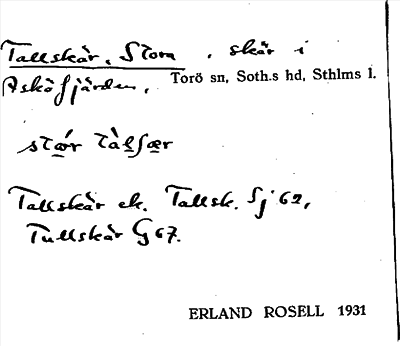 Tallskär, Stora, skär i
Asköfjärden, Torö sn, Soth.s hd, Sthlms l.
Tallskär ek. Tallsk. Sj 62,
Tullskär G 67.
ERLAND ROSELL 1931